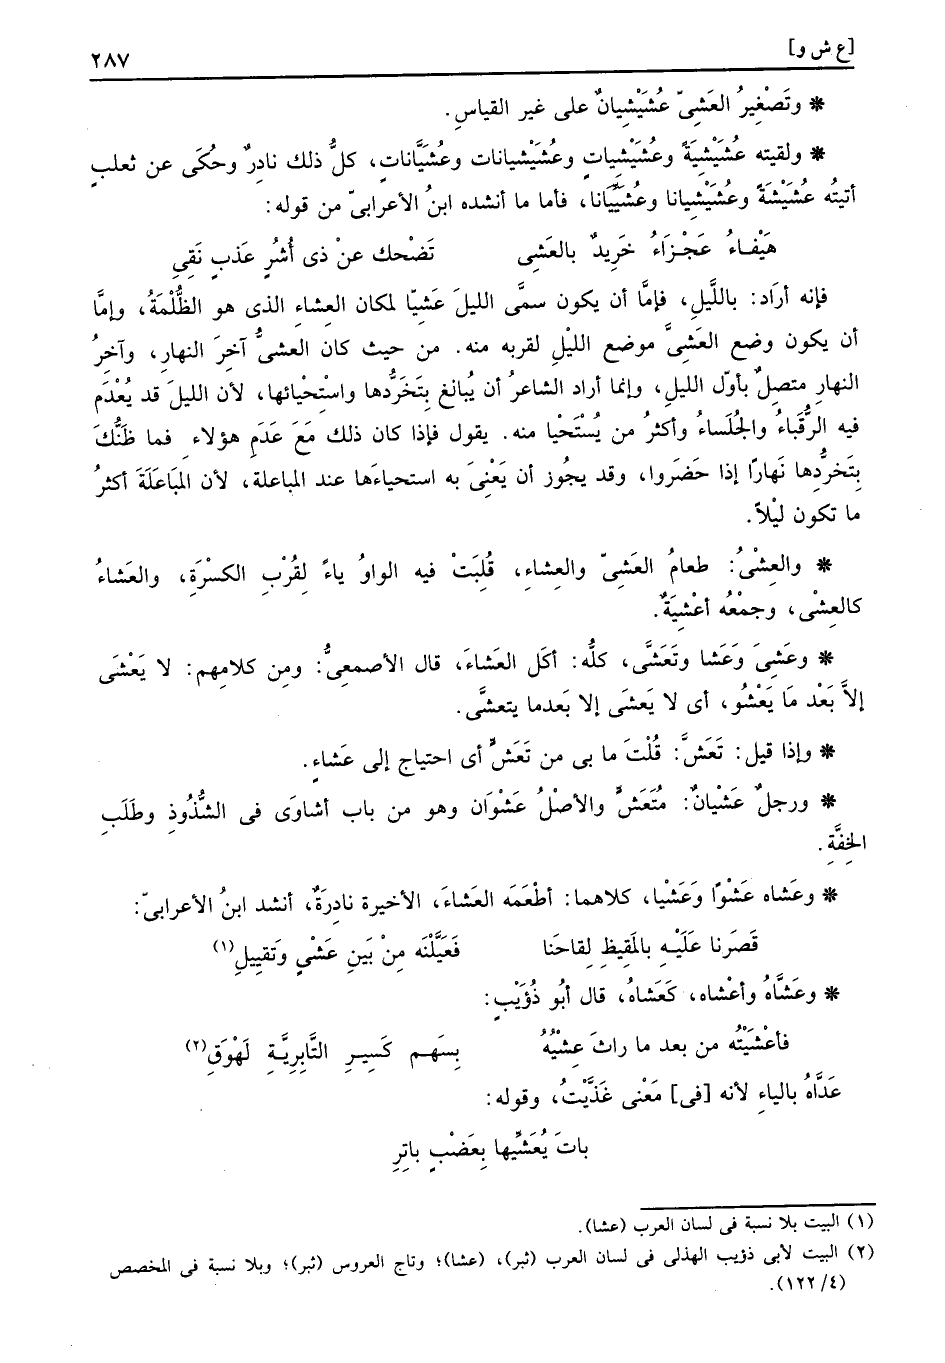 [ع ش و] ٢٨٧
* وتَصْغيرُ العَشِىّ عُشَيْشِيانٌ على غير القياسِ.
* ولقيته عُشَيْشِيَةً وعُشَيْشِياتٍ وعُشَيْشِيانات وعُشَيَّاناتٍ، كلُّ ذلك نادرٌ وحُكَى عن ثعلبٍ
أتيتُه عُشَيْشَةً وعُشَيْشِيانا وعُشَيَّيَانا، فأما ما أنشده ابنُ الأعرابىّ من قوله:
هَيْفـاءُ عَجْـزَاءُ خَرِيدٌ بالعَشِى تَضْحك عنْ ذى أُشُرٍ عَذبٍ نَقِى
فإنه أرَاد: باللَّيلِ، فإمَّا أن يكون سمَّى الليلَ عَشِيّا لمكان العِشاء الذى هو الظُّلْمَةُ، وإمَّا
أن يكون وضع العَشِىَّ موضع الليْلِ لقربه منه. من حيث كان العشىُّ آخرَ النهار، وآخرُ
النهارِ متصلٌ بأوّل الليلِ، وإنما أراد الشاعرُ أن يُبالغ بِتَخَرُّدها واستْحْيائها، لأن الليلَ قد يُعْدَم
فيه الرُّقَباءُ والجُلَساءُ وأكثرُ من يُسْتَحْيا منه. يقول فإذا كان ذلك مَعَ عَدَمِ هؤلاء فما ظَنُّكَ
بِتَخرُّدِها نَهارًا إذا حَضَروا، وقد يجُوز أن يَعْنىَ به استحياءَها عند المباعلة، لأن المَبَاعَلَةَ أكثرُ
ما تكون ليْلاً.
* والعِشْىُ: طعامُ العَشِىّ والعِشاءِ، قُلِبَتْ فيه الواوُ ياءً لِقُرْبِ الكسْرَةِ، والعَشاءُ
كالعِشْى، وجمْعُه أعْشِيَةٌ.
* وعَشِىَ وَعَشا وتَعَشَّى، كلُّه: أكَل العَشاءَ، قال الأصمعىُّ: ومن كلامِهم: لا يَعْشَى
إلاَّ بَعْد مَا يَعْشُو، أى لا يَعشَى إلا بَعدما يتعشَّى.
* وإذا قيل: تَعَشَّ: قُلْتَ ما بى من تَعَشٍّ أى احتياج إلى عَشاءٍ.
* ورجلٌ عَشْيانٌ: مُتَعَشٍّ والأصْلُ عَشْوَان وهو من باب أشاوَى فى الشُّذُوذِ وطَلَبِ
الخِفَّة.
* وعَشاه عَشْوًا وَعَشْيا، كلاهما: أطْعَمَه العَشاءَ، الأخيرة نادرَةٌ، أنشد ابنُ الأعرابىّ:
قَصَرنا عَلَيْـه بالمَقِيظِ لِقاحَنا فَعَيَّلْنَه مِنْ بَينِ عَشْىٍ وَتقييلِ(١)
* وعَشَّاهُ وأعْشاه، كَعَشاهُ، قال أبُو ذُؤَيْبٍ:
فأعْشَيْتُه من بعد ما راثَ عِشْيُهُ بِسَهـم كَسِيـرِ التَّابِرِيَّـةِ لَهْوَقِ(٢)
عَدَّاهُ بالياءِ لأنه [فى] مَعْنى غَذَّيْتُ، وقوله:
باتَ يُعَشِّيها بِعَضْبٍ باتِرِ
(١) البيت بلا نسبة فى لسان العرب (عشا).
(٢) البيت لأبى ذؤيب الهذلى فى لسان العرب (ثبر)، (عشا)؛ وتاج العروس (ثبر)؛ وبلا نسبة فى المخصص
(٤/ ١٢٢).